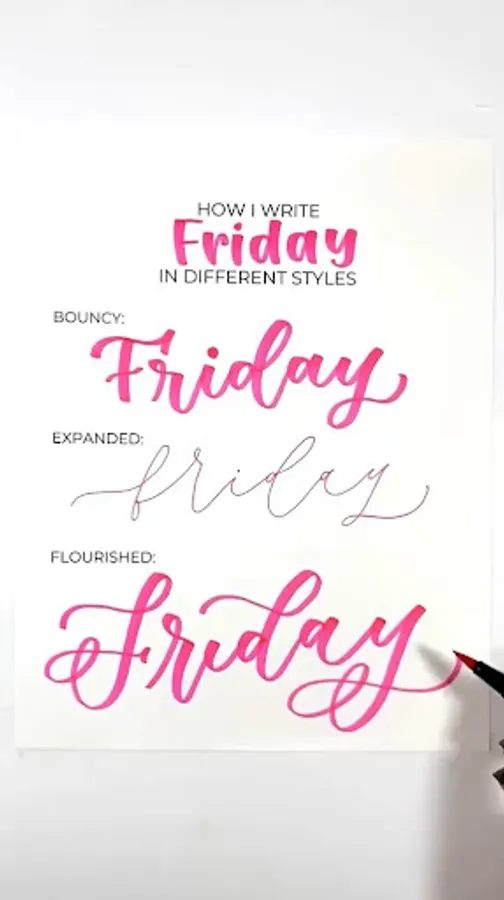 HOW I WRITE
Friday
IN DIFFERENT STYLES
BOUNCY:
Friday
EXPANDED:
friday
FLOURISHED:
Friday